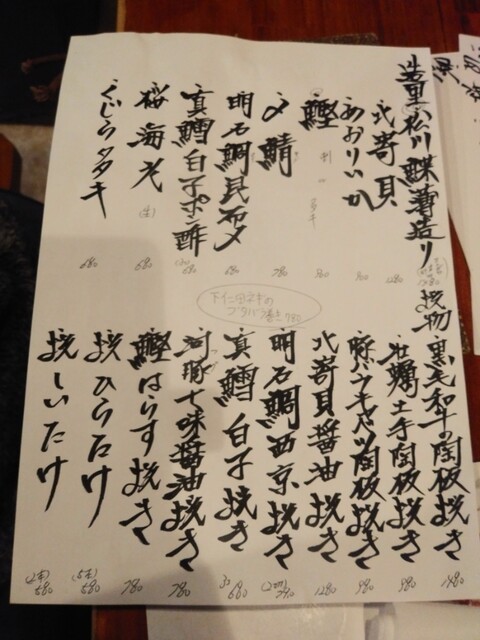 造里 松川鰈薄造り 1280
北寄貝 1280
あおりいか
鰹 刺 タタキ
〆鯖 780
明石鯛昆布〆 680
真鱈白子ポン酢 680
桜海老 (生) 680
くじらタタキ 680
下仁田ネギのブタバラ巻き 780
焼物 黒毛和牛の陶板焼き 1480
牡蠣土手陶板焼き 980
豚バラキャベツ陶板焼き 980
北寄貝醤油焼き 1280
明石鯛西京焼き
真鱈白子焼き 680
河豚七味醤油焼き 780
鰹はらす焼き 780
焼ひらたけ (5本) 580
焼しいたけ (2本) 580